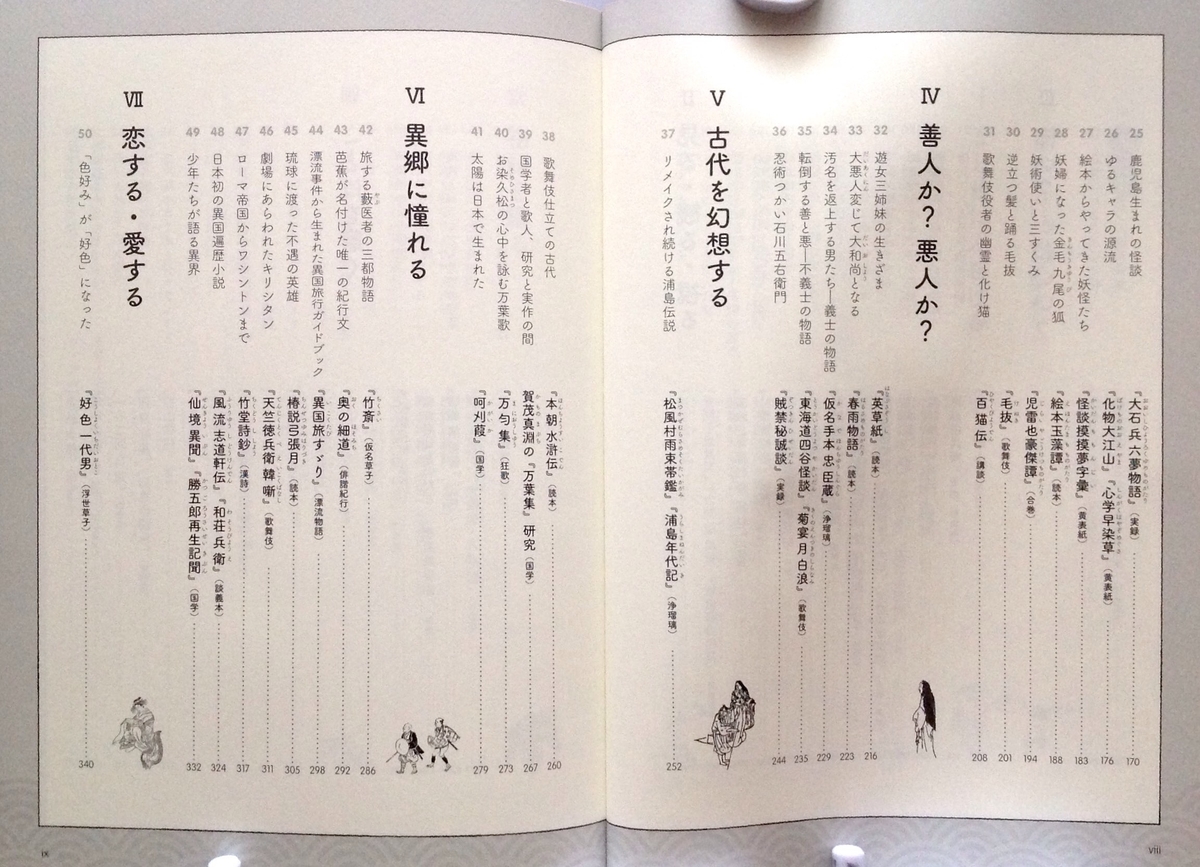 25 鹿児島生まれの怪談 『大石兵六夢物語』（実録） 170
26 ゆるキャラの源流 『化物大江山』『心学早染草』（黄表紙） 176
27 絵本からやってきた妖怪たち 『怪談摸摸夢字彙』（黄表紙） 183
28 妖婦になった金毛九尾の狐 『絵本玉藻譚』（読本） 188
29 妖術使いと三すくみ 『児雷也豪傑譚』（合巻） 194
30 逆立つ髪と踊る毛抜 『毛抜』（歌舞伎） 201
31 歌舞伎役者の幽霊と化け猫 『百猫伝』（講談） 208
Ⅳ 善人か？悪人か？
32 遊女三姉妹の生きざま 『英草紙』（読本） 216
33 大悪人変じて大和尚となる 『春雨物語』（読本） 223
34 汚名を返上する男たち―義士の物語 『仮名手本忠臣蔵』（浄瑠璃） 229
35 転倒する善と悪―不義士の物語 『東海道四谷怪談』『菊宴月白浪』（歌舞伎） 235
36 忍術つかい石川五右衛門 『賊禁秘誠談』（実録） 244
Ⅴ 古代を幻想する
37 リメイクされ続ける浦島伝説 『松風村雨束帯鑑』『浦島年代記』（浄瑠璃） 252
viii
38 歌舞伎仕立ての古代 『本朝水滸伝』（読本） 260
39 国学者と歌人、研究と実作の間 賀茂真淵の『万葉集』研究（国学） 267
40 お染久松の心中を詠む万葉歌 『万匂集』（狂歌） 273
41 太陽は日本で生まれた 『呵刈葭』（国学） 279
Ⅵ 異郷に憧れる
42 旅する藪医者の三都物語 『竹斎』（仮名草子） 286
43 芭蕉が名付けた唯一の紀行文 『奥の細道』（俳諧紀行） 292
44 漂流事件から生まれた異国旅行ガイドブック 『異国旅すゞり』（漂流物語） 298
45 琉球に渡った不遇の英雄 『椿説弓張月』（読本） 305
46 劇場にあらわれたキリシタン 『天竺徳兵衛韓噺』（歌舞伎） 311
47 ローマ帝国からワシントンまで 『竹堂詩鈔』（漢詩） 317
48 日本初の異国遍歴小説 『風流志道軒伝』『和荘兵衛』（談義本） 324
49 少年たちが語る異界 『仙境異聞』『勝五郎再生記聞』（国学） 332
Ⅶ 恋する・愛する
50 「色好み」が「好色」になった 『好色一代男』（浮世草子） 340
ix